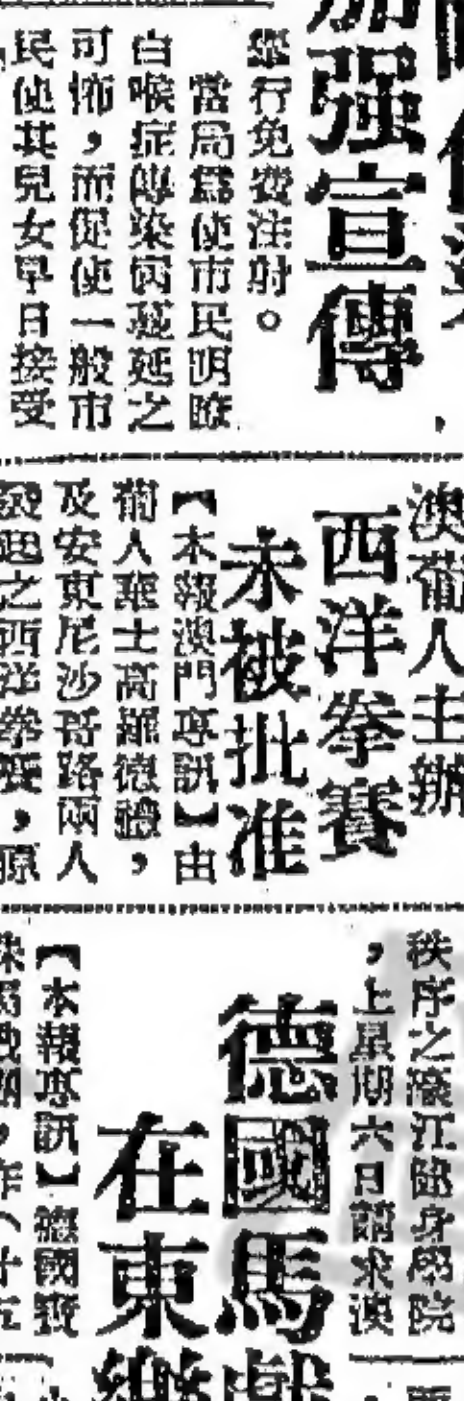 加强宣傳
舉行免費注射。
當局爲使市民明瞭
白喉症傳染病蔓延之
可怖，而促使一般市
民使其兒女早日接受
澳葡人主辦
西洋拳賽
未被批准
【本報澳門專訊】由
葡人士高羅德
及安東尼沙哥路兩人
之西洋拳賽，原
秩序之濠江健身學院
，上星期六日請求澳
德國馬戲
在東
【本報專訊】德國寶